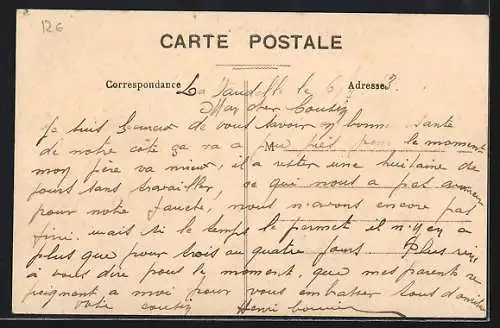 126
CARTE POSTALE
Correspondance Adresse
La le 6
Mon cher Cousin
Je suis heureux de vous savoir en bonne santé
de notre côté ça va a peu près pour le moment
M
mon père va mieux, il a rester une huitaine de
jours sans travailler, ce qui nous a pas
pour notre fauche, nous n'avons encore pas
fini. mais si le temps le permet il n'y en a
plus que pour trois ou quatre jours. Plus rien
à vous dire pour le moment, que mes parents se
joignent a moi pour vous embrasser tous
votre cousin Henri